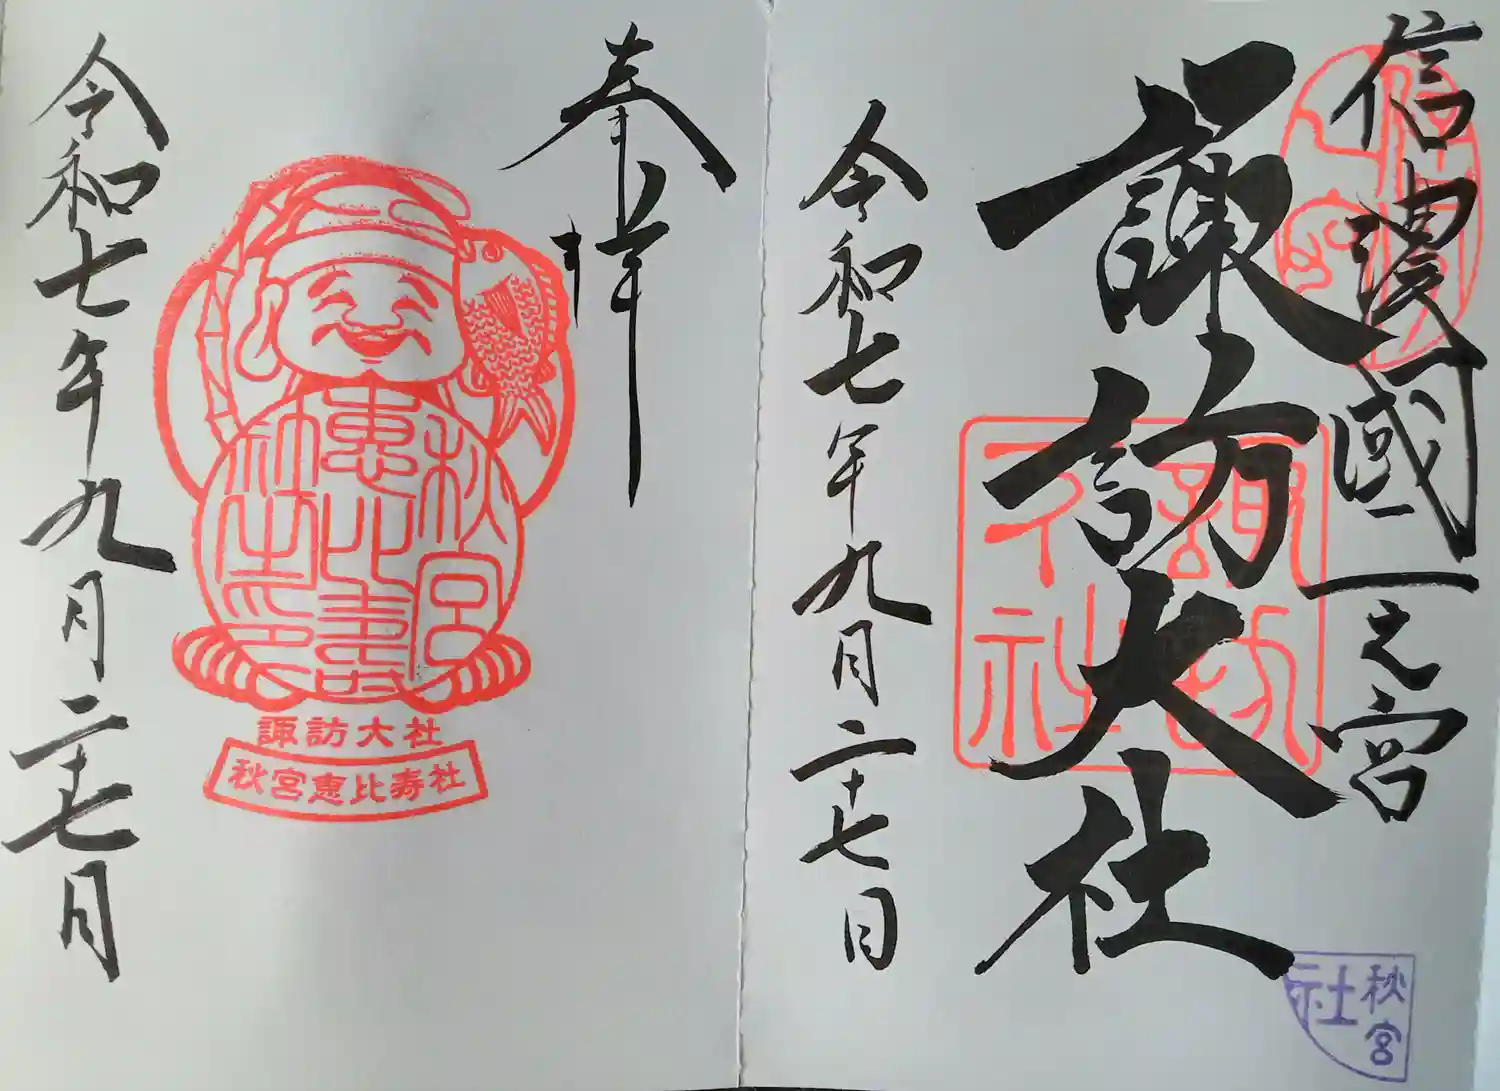 信濃國一之宮
諏訪大社
諏訪大社
秋宮
社
令和七年九月二十七日
奉拝
秋宮
恵比寿
社之印
諏訪大社
秋宮恵比寿社
令和七年九月二十七日